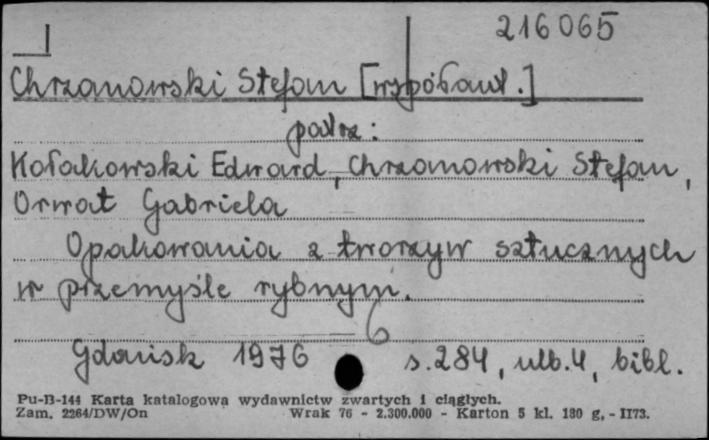 216065
Chrzanowski Stefan [współaut.]
patrz:
Kołakowski Edward, Chrzanowski Stefan,
Orwat Gabriela
Opakowania z tworzyw sztucznych
w przemyśle rybnym.
6
Gdańsk 1976 s. 284, nlb. 4, bibl.
Pu-B-144 Karta katalogowa wydawnictw zwartych i ciągłych.
Zam. 2264/DW/On Wrak 76 - 2.300.000 - Karton 5 kl. 180 g, - II73.